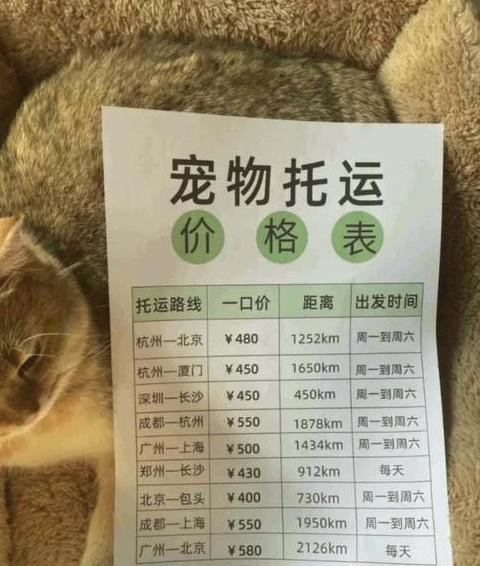 宠物托运
价格表
托运路线 一口价 距离 出发时间
杭州—北京 ¥480 1252km 周一到周六
杭州—厦门 ¥450 1650km 周一到周六
深圳—长沙 ¥450 450km 周一到周六
成都—杭州 ¥550 1878km 周一到周六
广州—上海 ¥500 1434km 周一到周六
郑州—长沙 ¥430 912km 每天
北京—包头 ¥400 730km 周一到周六
成都—上海 ¥550 1950km 周一到周六
广州—北京 ¥580 2126km 每天